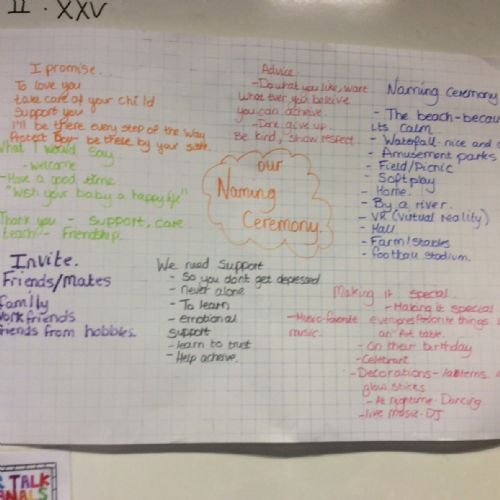 II · XXV
I promise...
To love you
take care of your child
Support you
I'll be there every step of the way
Protect - be there by your side.
What I would say
- welcome
- Have a good time
"Wish your baby a happy life"
Thank you - support, care
teach - Friendship.
Invite.
Friends/Mates
family
Work friends
friends from hobbies.
Advice
- Do what you like, want
What ever you believe
you can achieve
- Don't give up.
Be kind, show respect
our
Naming
Ceremony.
We need support
- So you dont get depressed
- Never alone
- To learn
- emotional
support
- learn to trust
- Help acheive.
Naming Ceremony
- The beach - becau
its calm
- Waterfall - nice and c
- Amusement parks
- Field/Picnic
- Soft play
- Home.
- By a river.
- VR (Virtual Reality)
- Hall
- Farm/Stables
- football stadium.
Making it special
- Making it special
everyones favorite things
an Art table.
- Music-favorite
music.
- On their birthday
- Celebrant
- Decorations - lanterns
glow sticks
- At nightime - Dancing
- live music - DJ
TALK